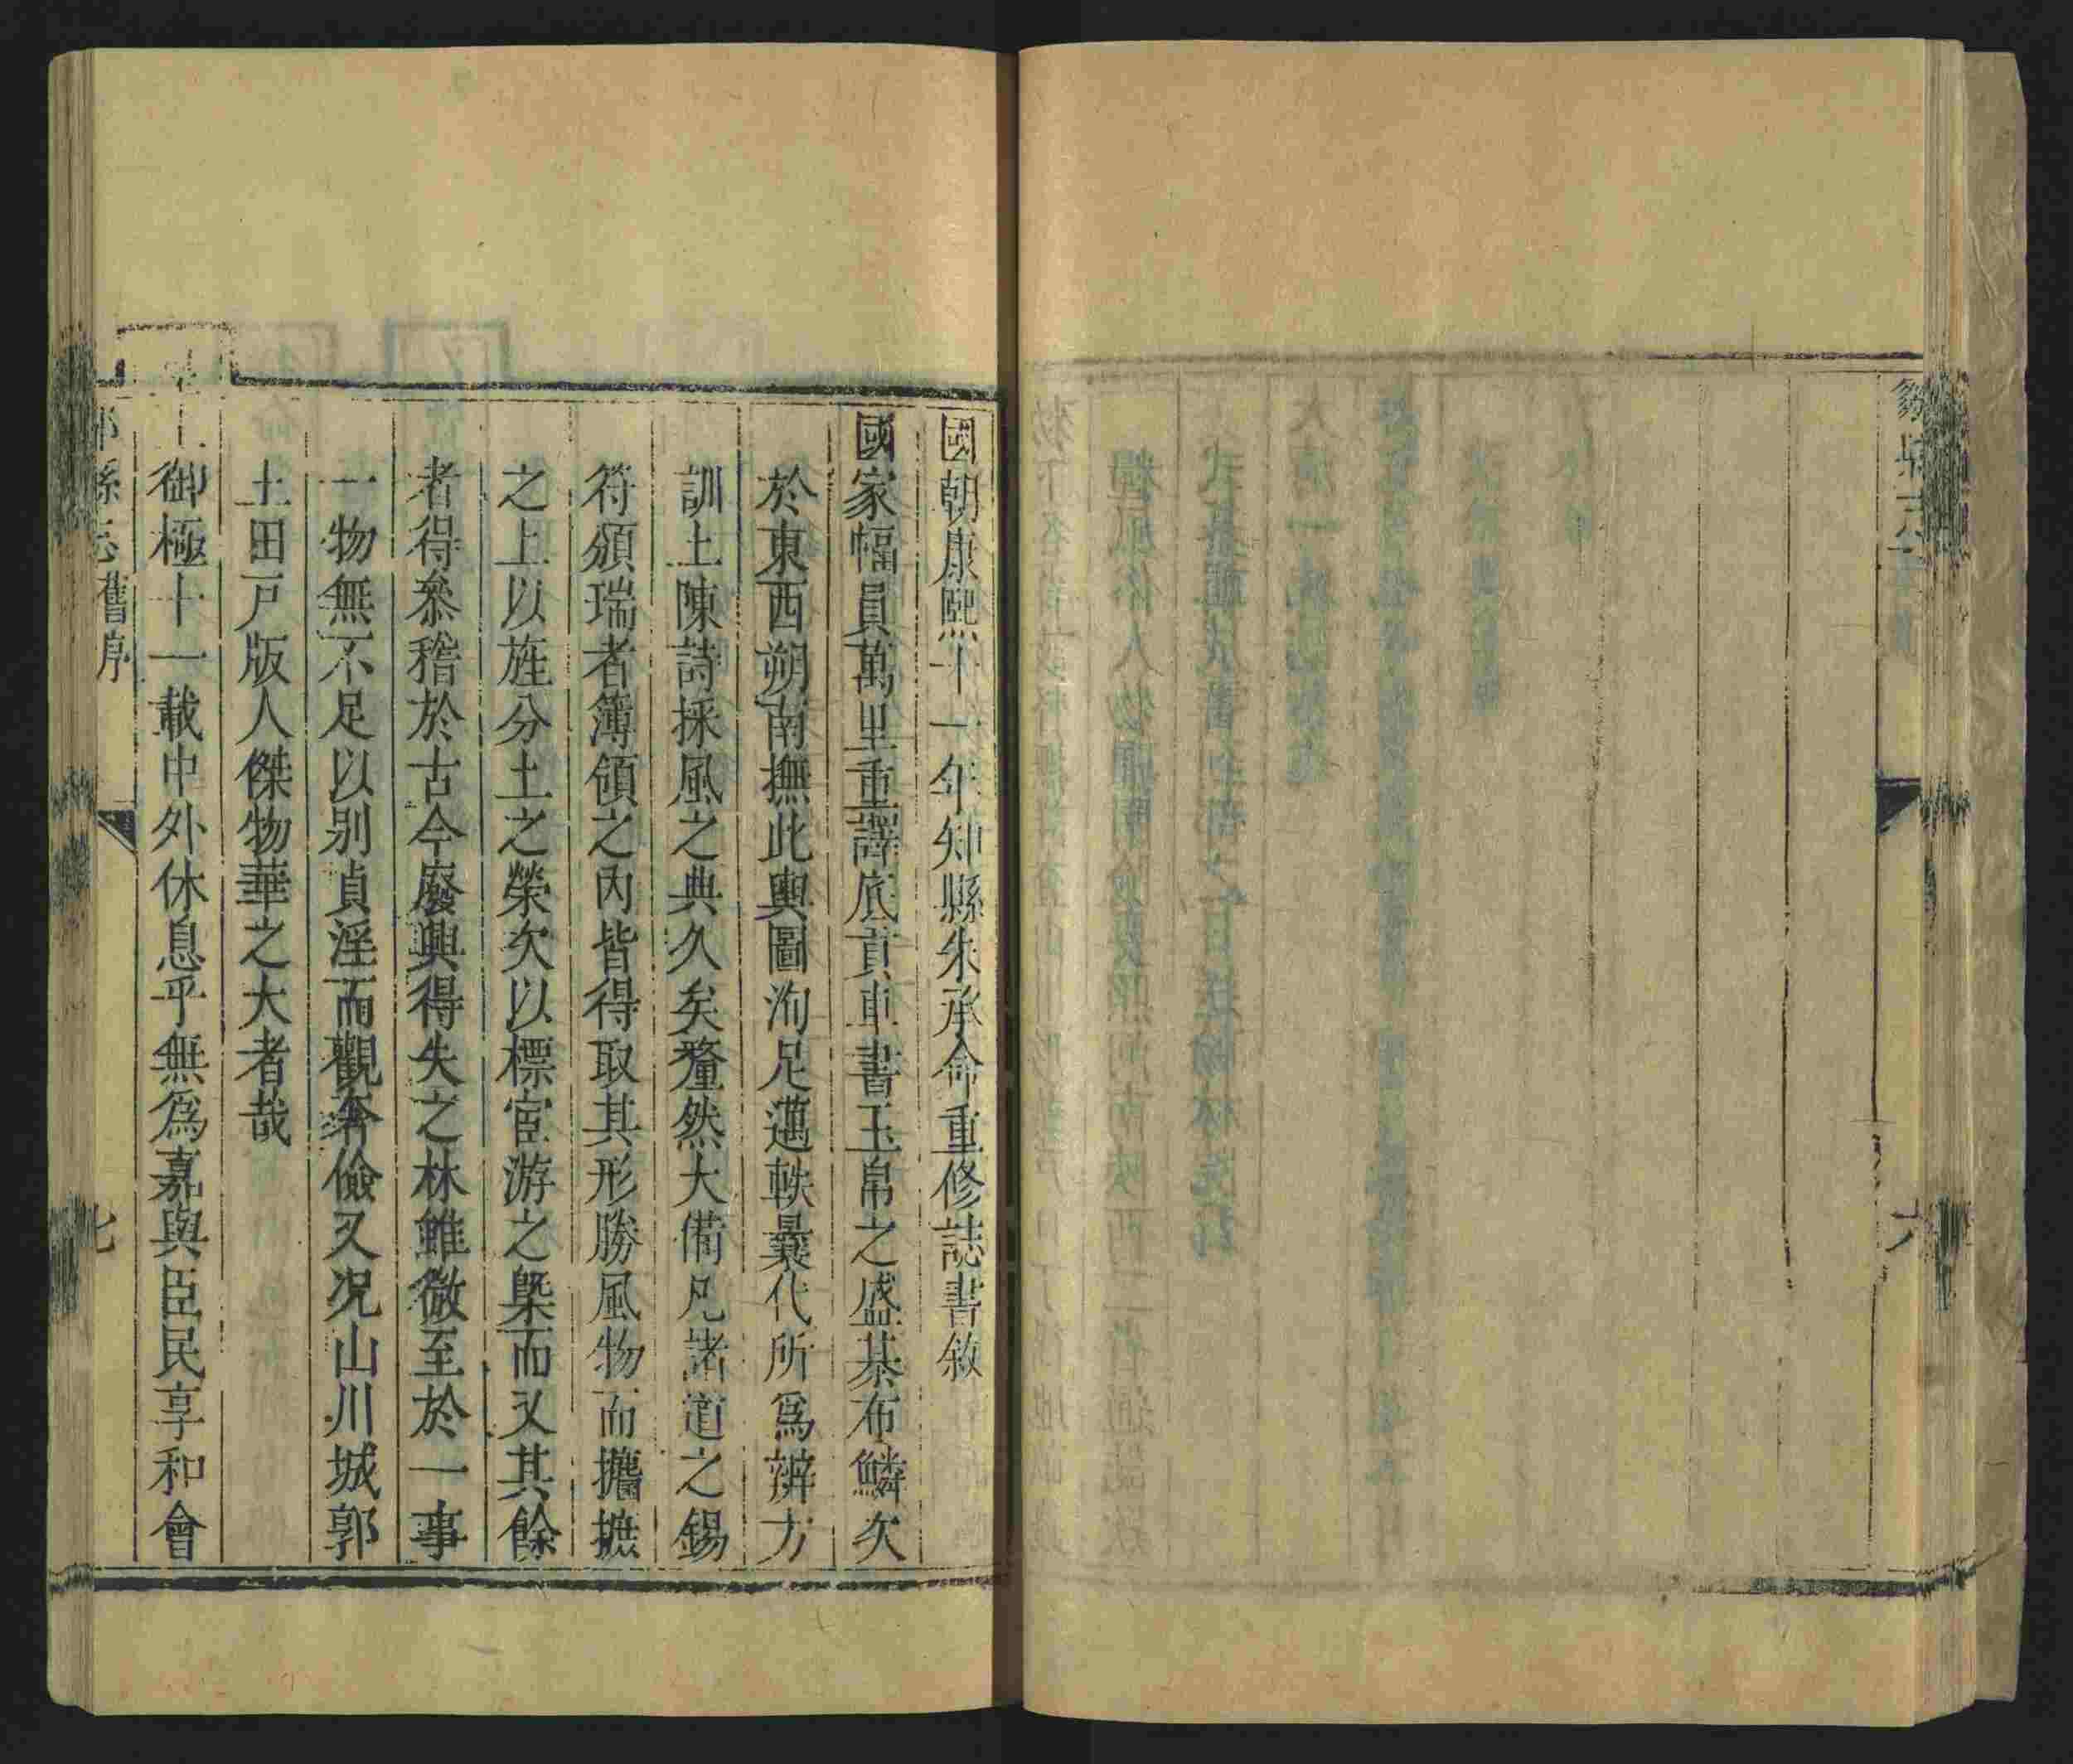 六
國朝康熙十一年知縣朱承命重修誌書敘
國家幅員萬里重譯底貢車書玉帛之盛棊布鱗次
於東西朔南撫此輿圖洵足邁軼曩代所爲辨方
訓土陳詩採風之典久矣釐然大備凡諸道之錫
符頒瑞者簿領之內皆得取其形勝風物而攟摭
之上以旌分土之榮次以標宦游之槩而又其餘
者得叅稽於古今廢興得失之林雖微至於一事
一物無不足以別貞淫而觀奢儉又况山川城郭
土田戸版人傑物華之大者哉
上御極十一載中外休息乎無爲嘉與臣民享和會
縣志舊序
七